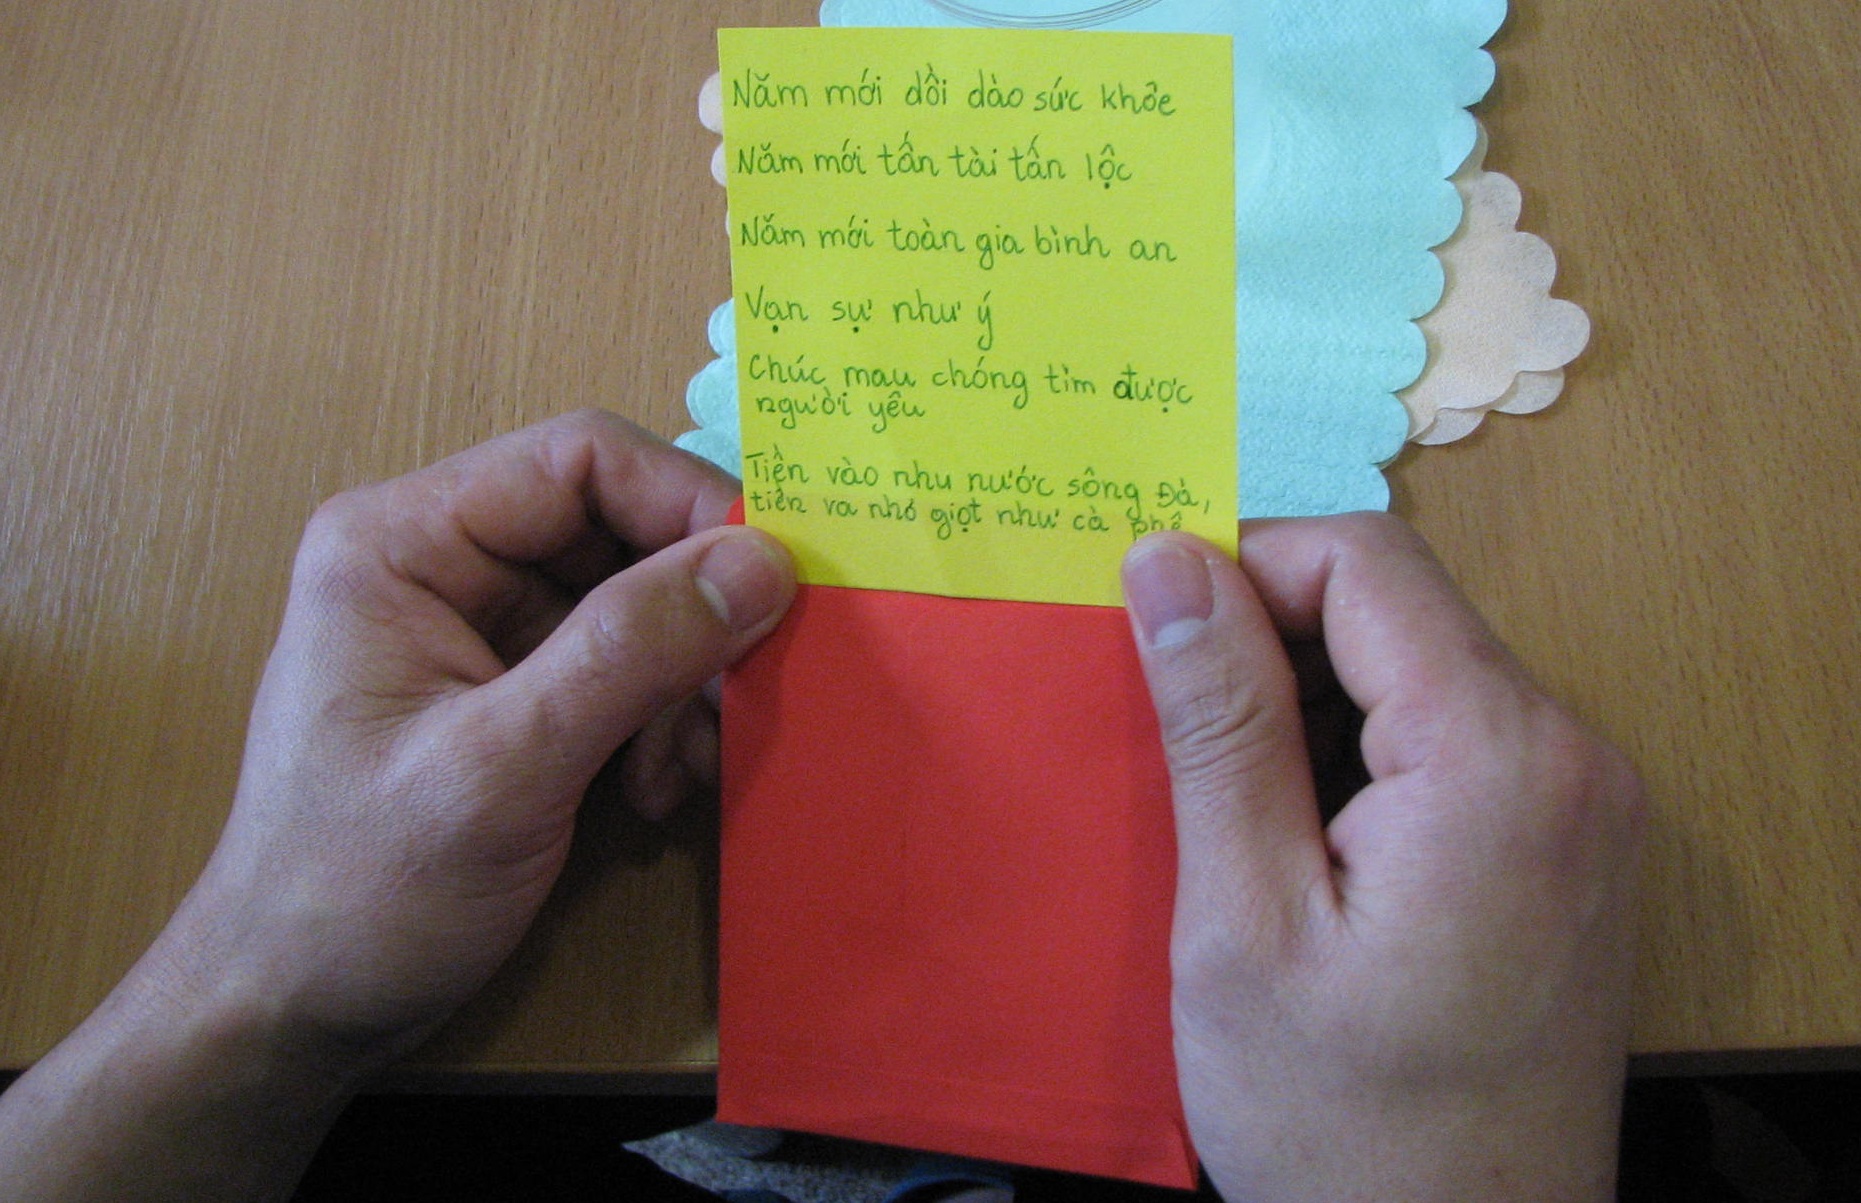 Năm mới dồi dào sức khỏe
Năm mới tấn tài tấn lộc
Năm mới toàn gia bình an
Vạn sự như ý
Chúc mau chóng tìm được
người yêu
Tiền vào nhu nước sông Đà,
tiền ra nhỏ giọt như cà phê